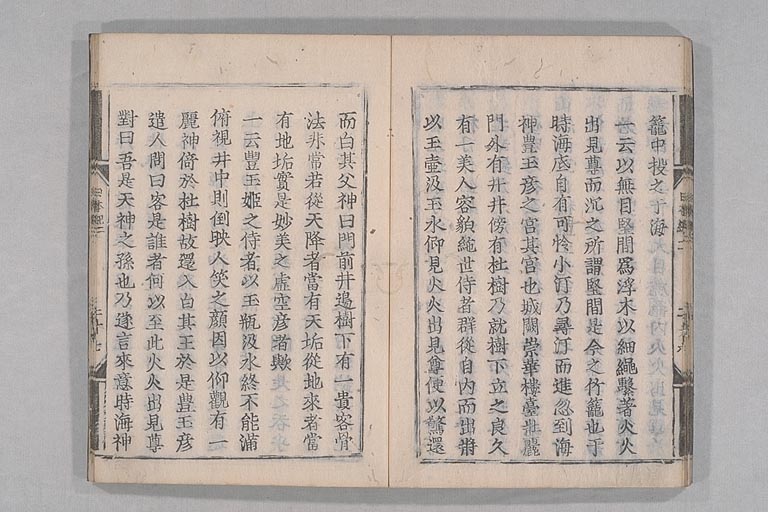 籠中投之于海
一云以無目堅間爲浮木以細繩繫著火火
出見尊而沉之所謂堅間是今之竹籠也于
時海底自有可怜小汀乃尋汀而進忽到海
神豊玉彦之宮其宮也城闕崇華樓臺壯麗
門外有井井傍有杜樹乃就樹下立之良久
有一美人容貌絶世侍者群從自内而出將
以玉壺汲玉水仰見火火出見尊便以驚還
而白其父神曰門前井邊樹下有一貴客骨
法非常若從天降者當有天垢從地來者當
有地垢實是妙美之虚空彦者歟
一云豊玉姬之侍者以玉瓶汲水終不能滿
俯視井中則倒映人笑之顔因以仰觀有一
麗神倚於杜樹故還入白其王於是豊玉彦
遣人問曰客是誰者何以至此火火出見尊
對曰吾是天神之孫也乃遂言來意時海神